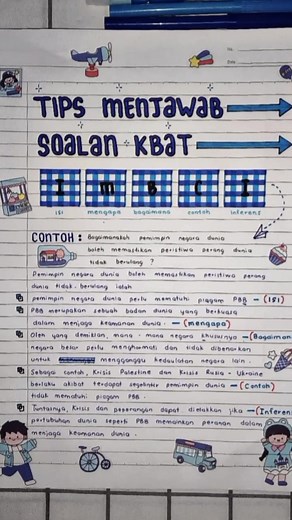 No.
Date
TIPS MENJAWAB
SOALAN KBAT
I M B C I
isi mengapa bagaimana contoh inferens
CONTOH : Bagaimanakah pemimpin negara dunia
boleh memastikan peristiwa perang dunia
tidak berulang ?
Pemimpin negara dunia boleh memastikan peristiwa perang
dunia tidak berulang ialah
pemimpin negara dunia perlu mematuhi piagam PBB - (ISI)
PBB merupakan sebuah badan dunia yang berkuasa
dalam menjaga keamanan dunia. - (mengapa)
Oleh yang demikian, mana - mana negara khususnya - (Bagaiman
negara besar perlu menghormati dan tidak dibenarkan
untuk mengganggu kedaulatan negara lain.
Sebagai contoh, Krisis Palestine dan Krisis Rusia - Ukraine
berlaku akibat terdapat segelintir pemimpin dunia - (Contoh)
tidak mematuhi piagam PBB.
Tuntasnya, Krisis dan peperangan dapat dielakkan jika - (Inferen
pertubuhan dunia seperti PBB memainkan peranan dalam
menjaga keamanan dunia.